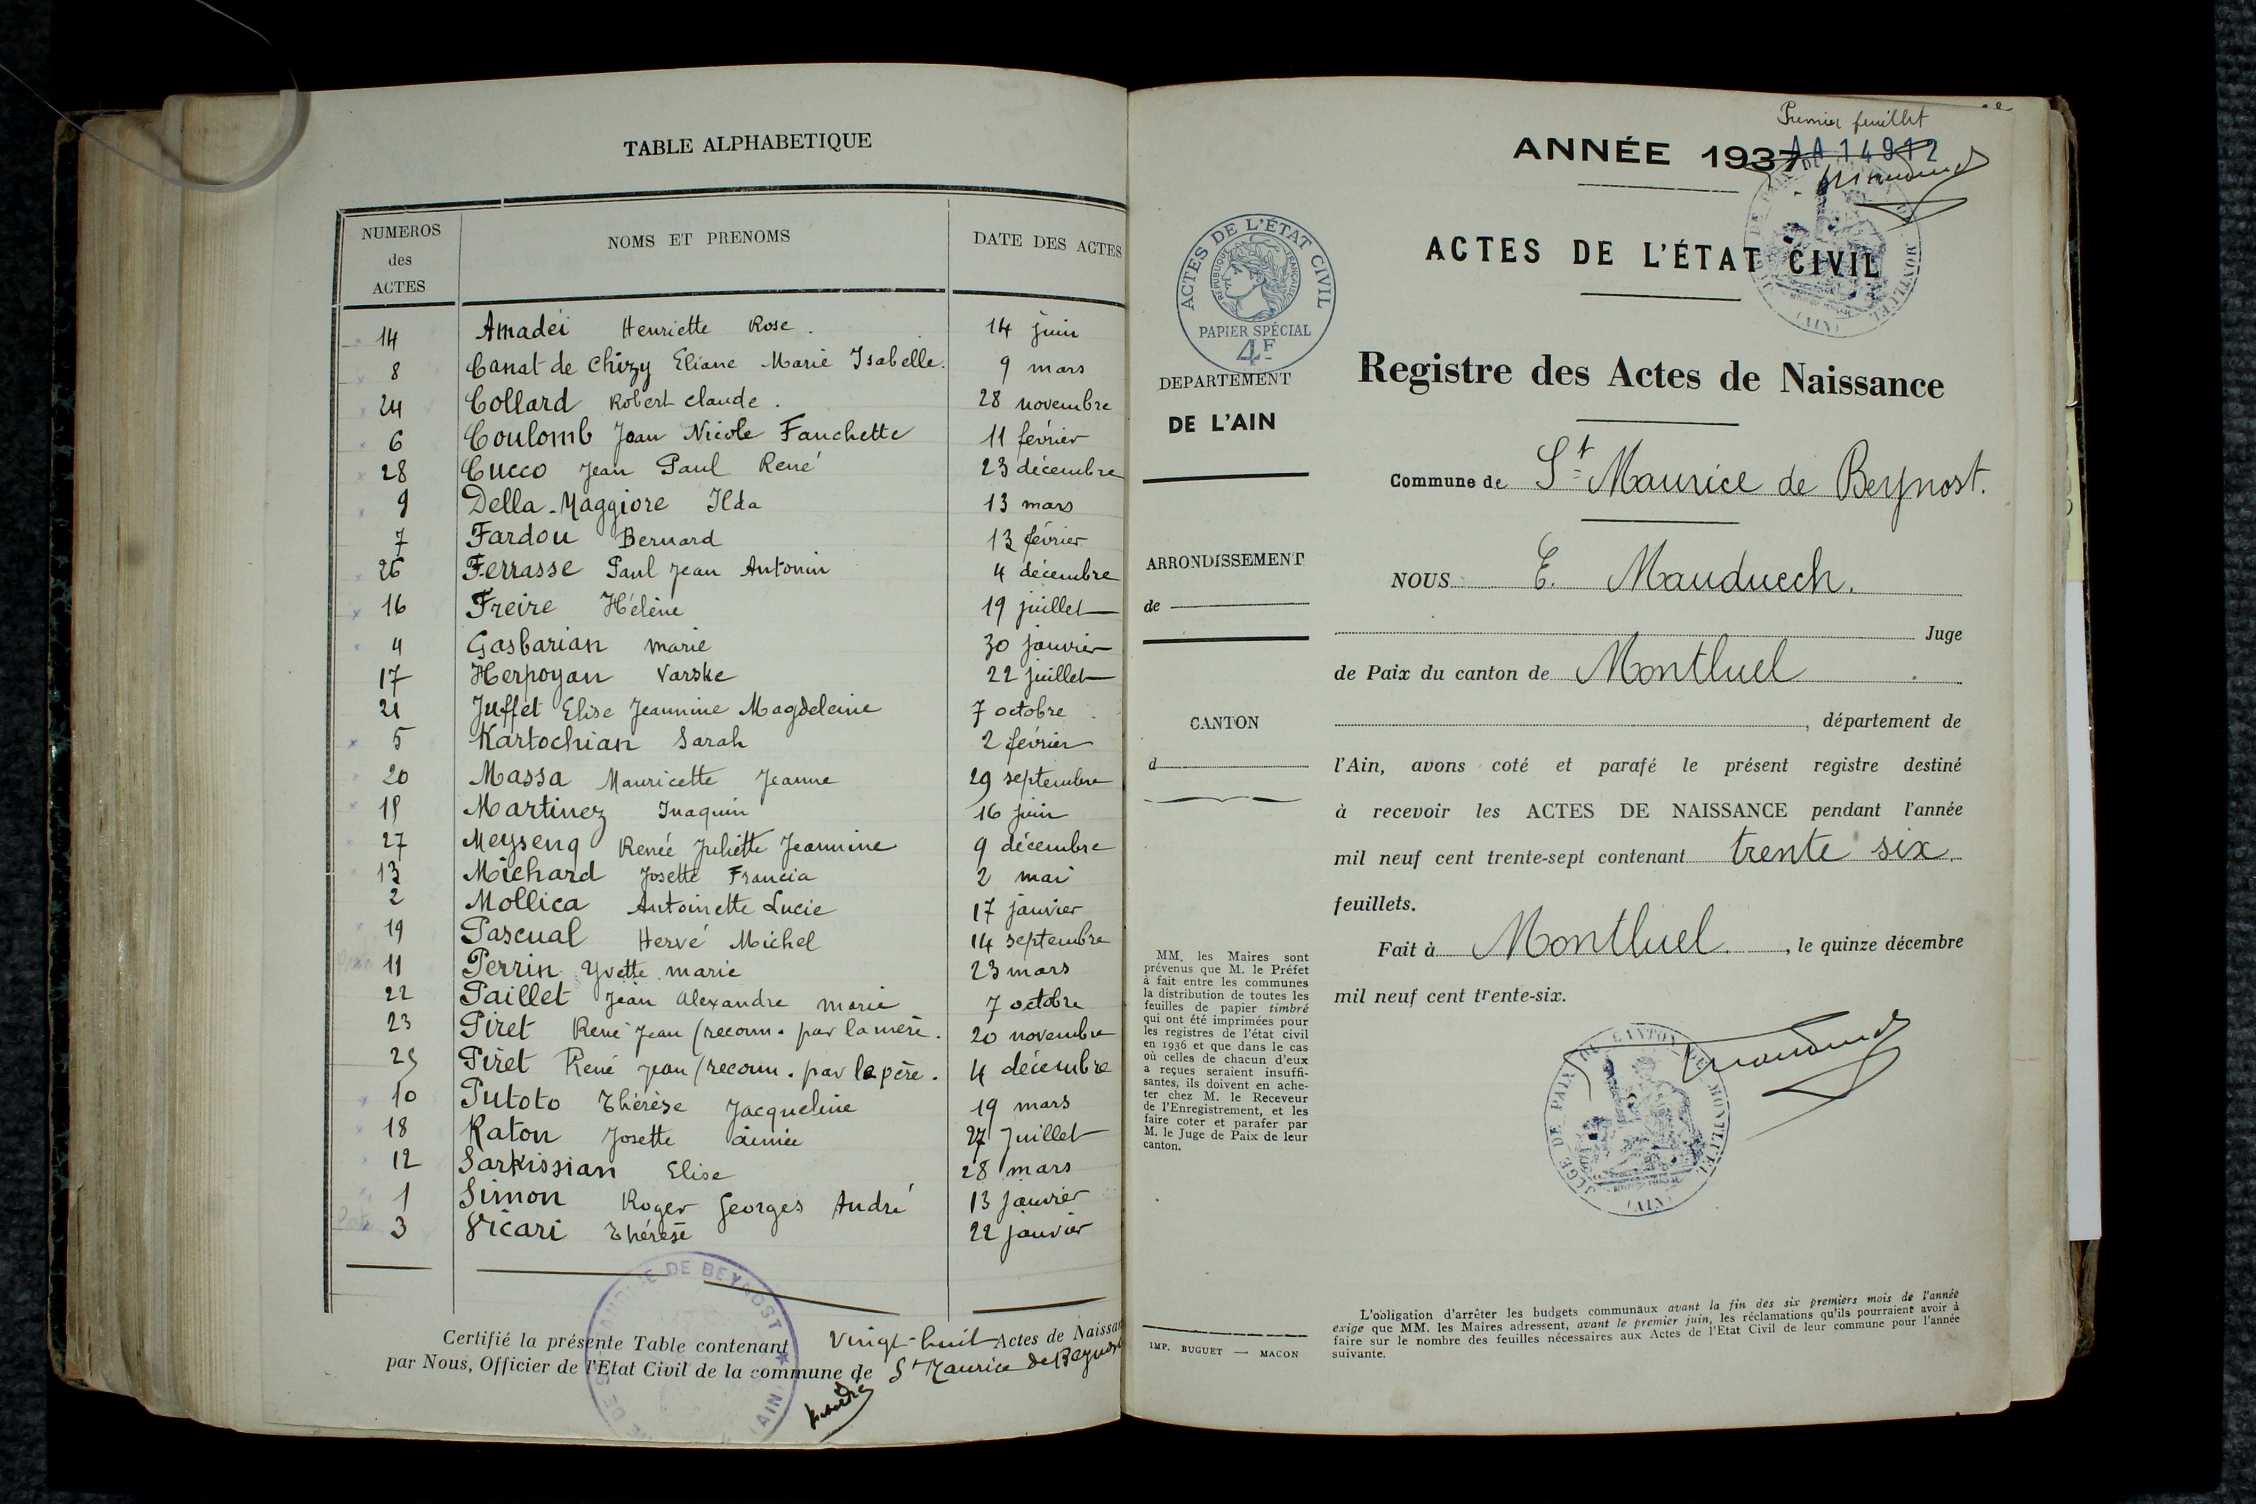 TABLE ALPHABETIQUE
NUMEROS des ACTES NOMS ET PRENOMS DATE DES ACTES
14 Amadei Henriette Rose. 14 juin
8 Canat de Chizy Eliane Marie Isabelle. 9 mars
24 Collard Robert Claude. 28 novembre
6 Coulomb Jean Nicole Fanchette 11 février
28 Cucco Jean Paul René 23 décembre
9 Della-Maggiore Ilda 13 mars
7 Fardou Bernard 13 février
26 Ferrasse Paul Jean Antonin 4 décembre
16 Freire Hélène 19 juillet
4 Gasbarian Marie 30 janvier
17 Herpoyan Varske 22 juillet
21 Juffet Elise Jeannine Magdeleine 7 octobre
5 Kartochian Sarah 2 février
20 Massa Mauricette Jeanne 29 septembre
15 Martinez Inaquin 16 juin
27 Meysenq Renée Juliette Jeannine 9 décembre
13 Michard Josette Francia 2 mai
2 Mollica Antoinette Lucie 17 janvier
19 Pascual Hervé Michel 14 septembre
11 Perrin Yvette Marie 23 mars
22 Paillet Jean Alexandre Marie 7 octobre
23 Piret René Jean (reconn. par la mère. 20 novembre
25 Piret René Jean (reconn. par le père. 4 décembre
10 Putoto Thérèse Jacqueline 19 mars
18 Raton Josette Aimée 27 Juillet
12 Sarkissian Elise 28 mars
1 Simon Roger Georges André 13 janvier
3 Vicari Thérèse 22 janvier
Certifié la présente Table contenant vingt-huit Actes de Naissan
par Nous, Officier de l'Etat Civil de la commune de St Maurice de Beynost
Premier feuillet
ANNÉE 1937
AA 14912
ACTES DE L'ÉTAT CIVIL
ACTES DE L'ÉTAT CIVIL
RÉPUBLIQUE FRANÇAISE
PAPIER SPÉCIAL
4F
Registre des Actes de Naissance
DEPARTEMENT
DE L'AIN
Commune de St Maurice de Beynost.
ARRONDISSEMENT
de
CANTON
d
NOUS E. Mauduech.
Juge
de Paix du canton de Montluel
, département de
l'Ain, avons coté et parafé le présent registre destiné
à recevoir les ACTES DE NAISSANCE pendant l'année
mil neuf cent trente-sept contenant trente six
feuillets.
Fait à Montluel, le quinze décembre
mil neuf cent trente-six.
JUGE DE PAIX DU CANTON DE MONTLUEL
(AIN)
MM. les Maires sont
prévenus que M. le Préfet
à fait entre les communes
la distribution de toutes les
feuilles de papier timbré
qui ont été imprimées pour
les registres de l'état civil
en 1936 et que dans le cas
où celles de chacun d'eux
a reçues seraient insuffi-
santes, ils doivent en ache-
ter chez M. le Receveur
de l'Enregistrement, et les
faire coter et parafer par
M. le Juge de Paix de leur
canton.
IMP. BUGUET — MACON
L'obligation d'arrêter les budgets communaux avant la fin des six premiers mois de l'année
exige que MM. les Maires adressent, avant le premier juin, les réclamations qu'ils pourraient avoir à
faire sur le nombre des feuilles nécessaires aux Actes de l'Etat Civil de leur commune pour l'année
suivante.